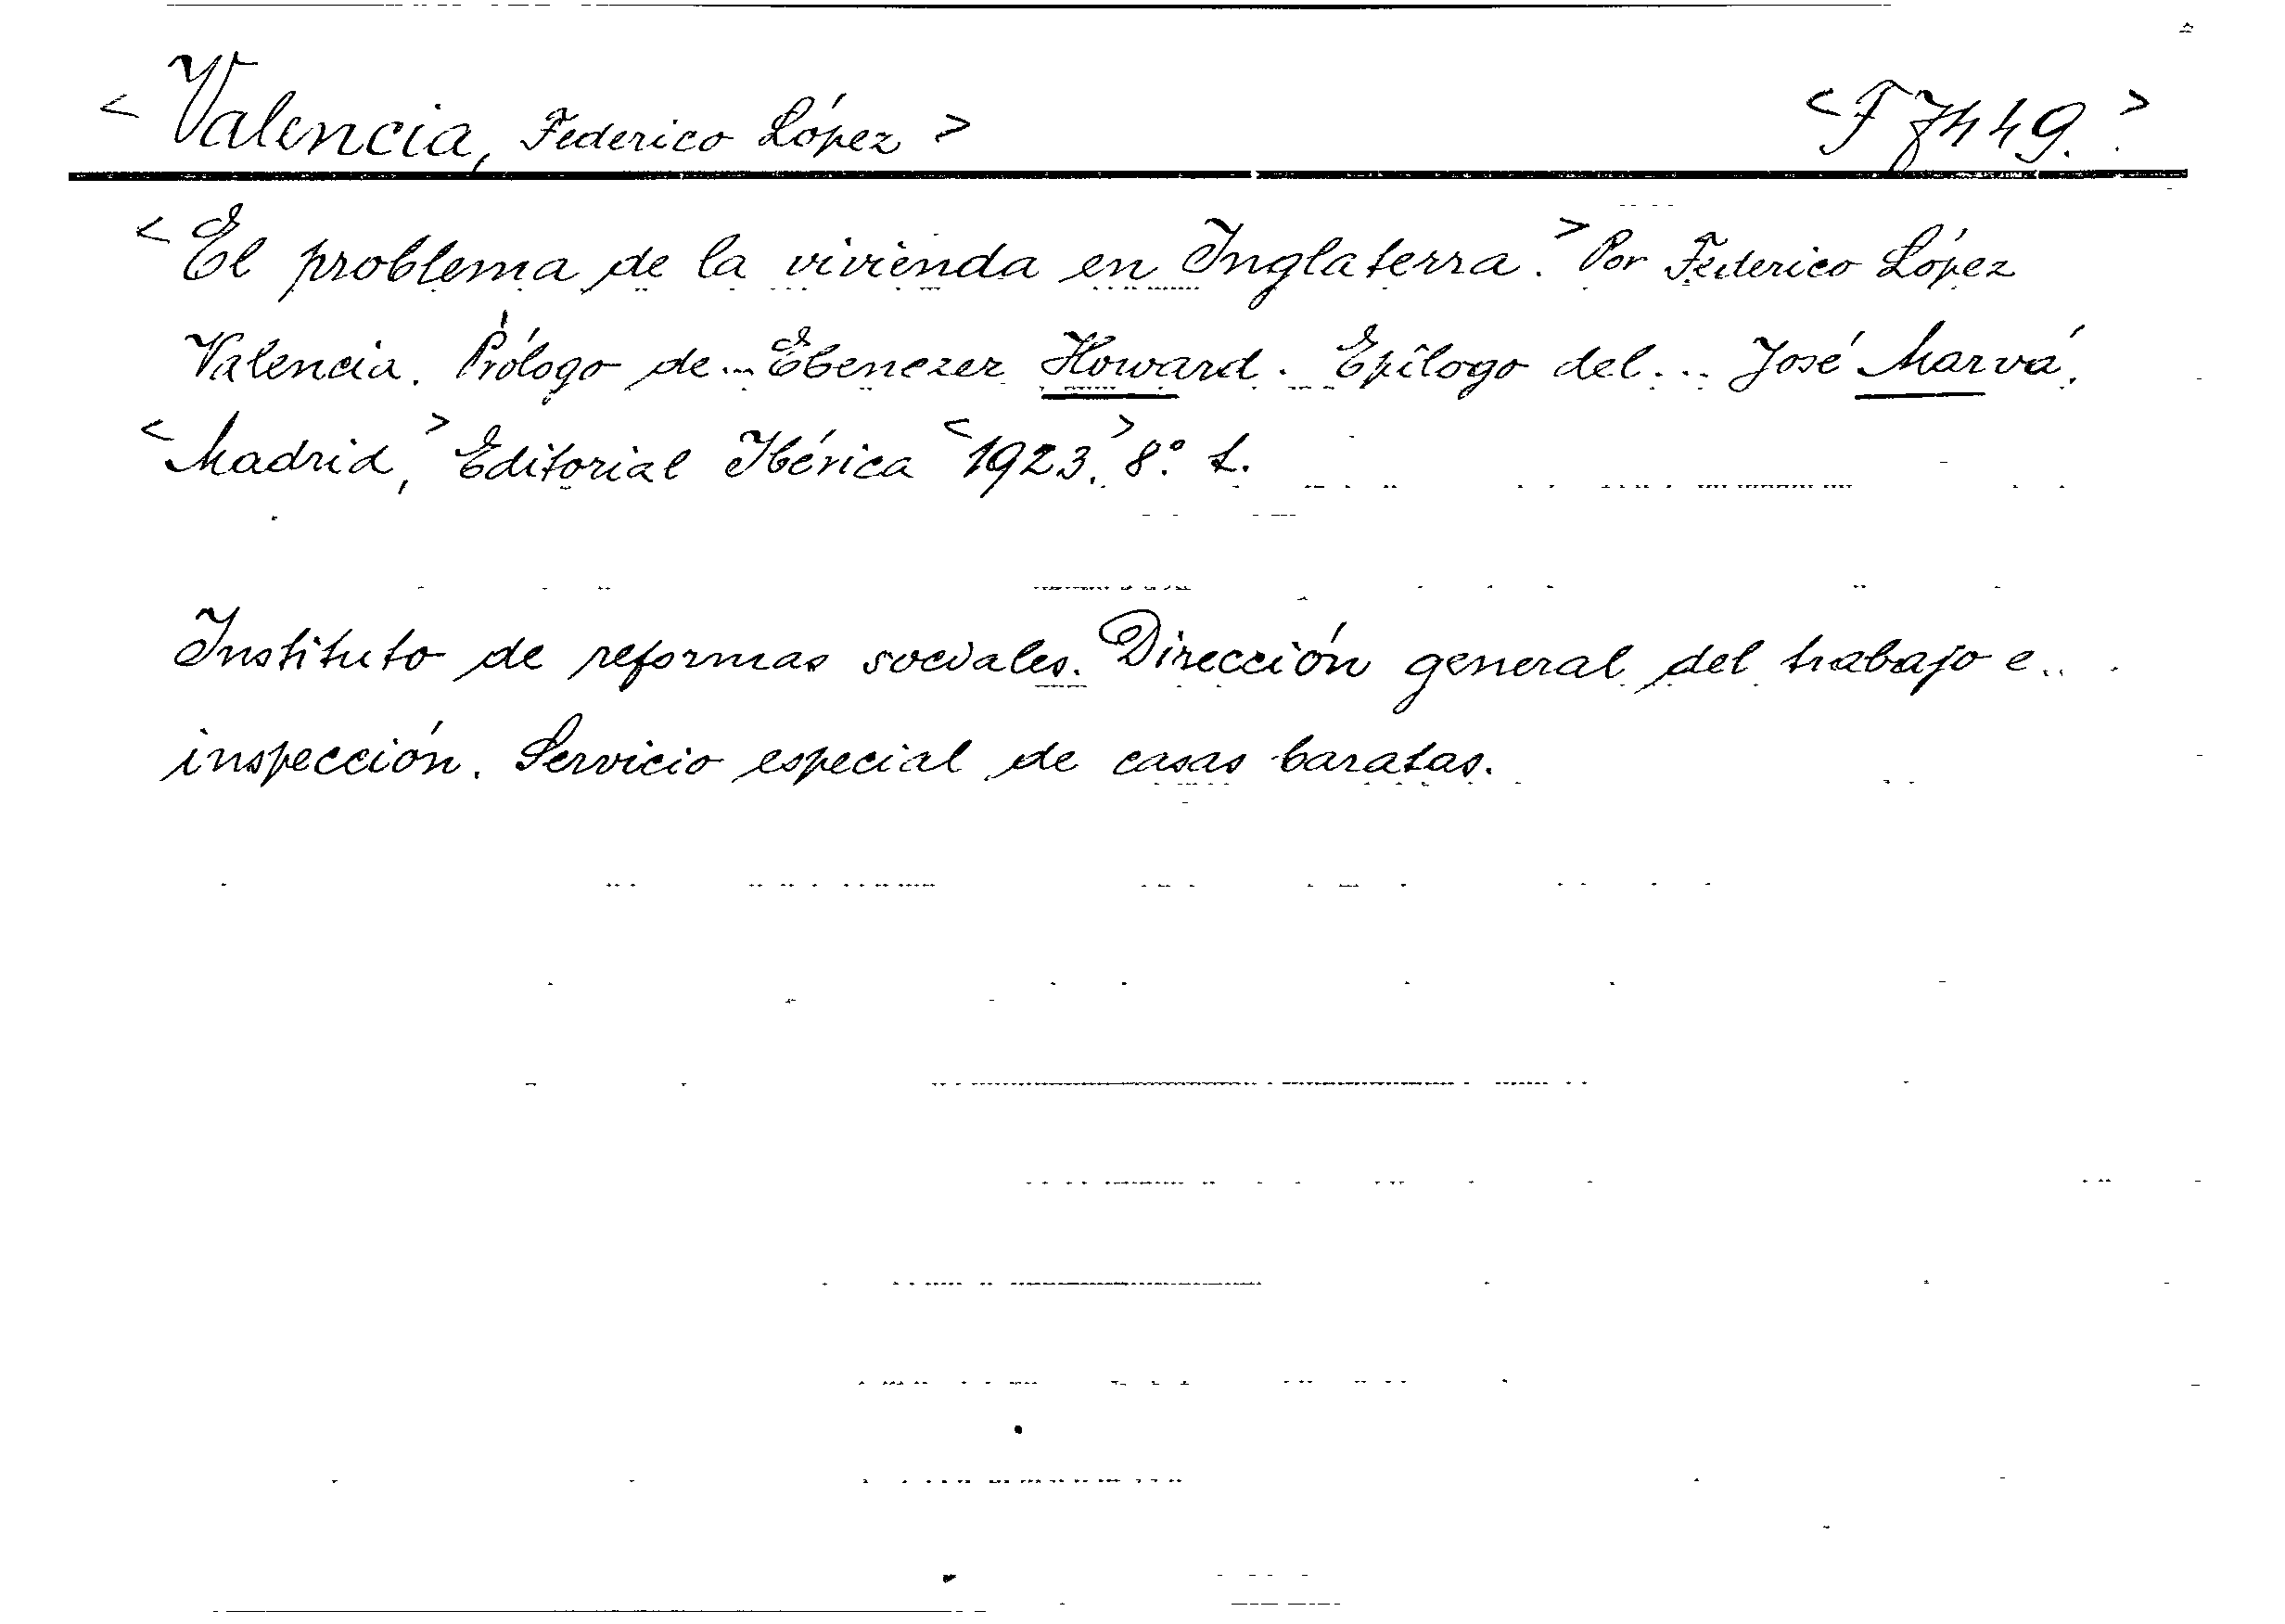 < Valencia, Federico López > < F 7449. >
< El problema de la vivienda en Inglaterra. > Por Federico López
Valencia. Prólogo de ... Ebenezer Howard. Epílogo del ... José Marvá.
< Madrid, > Editorial Ibérica < 1923. > 8:o L.
Instituto de reformas sociales. Dirección general del trabajo e
inspección. Servicio especial de casas baratas.